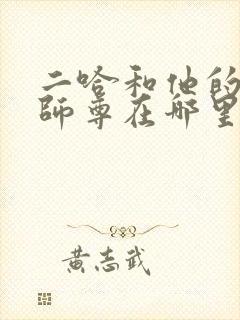 二哈和他的
师尊在哪里
黄志武